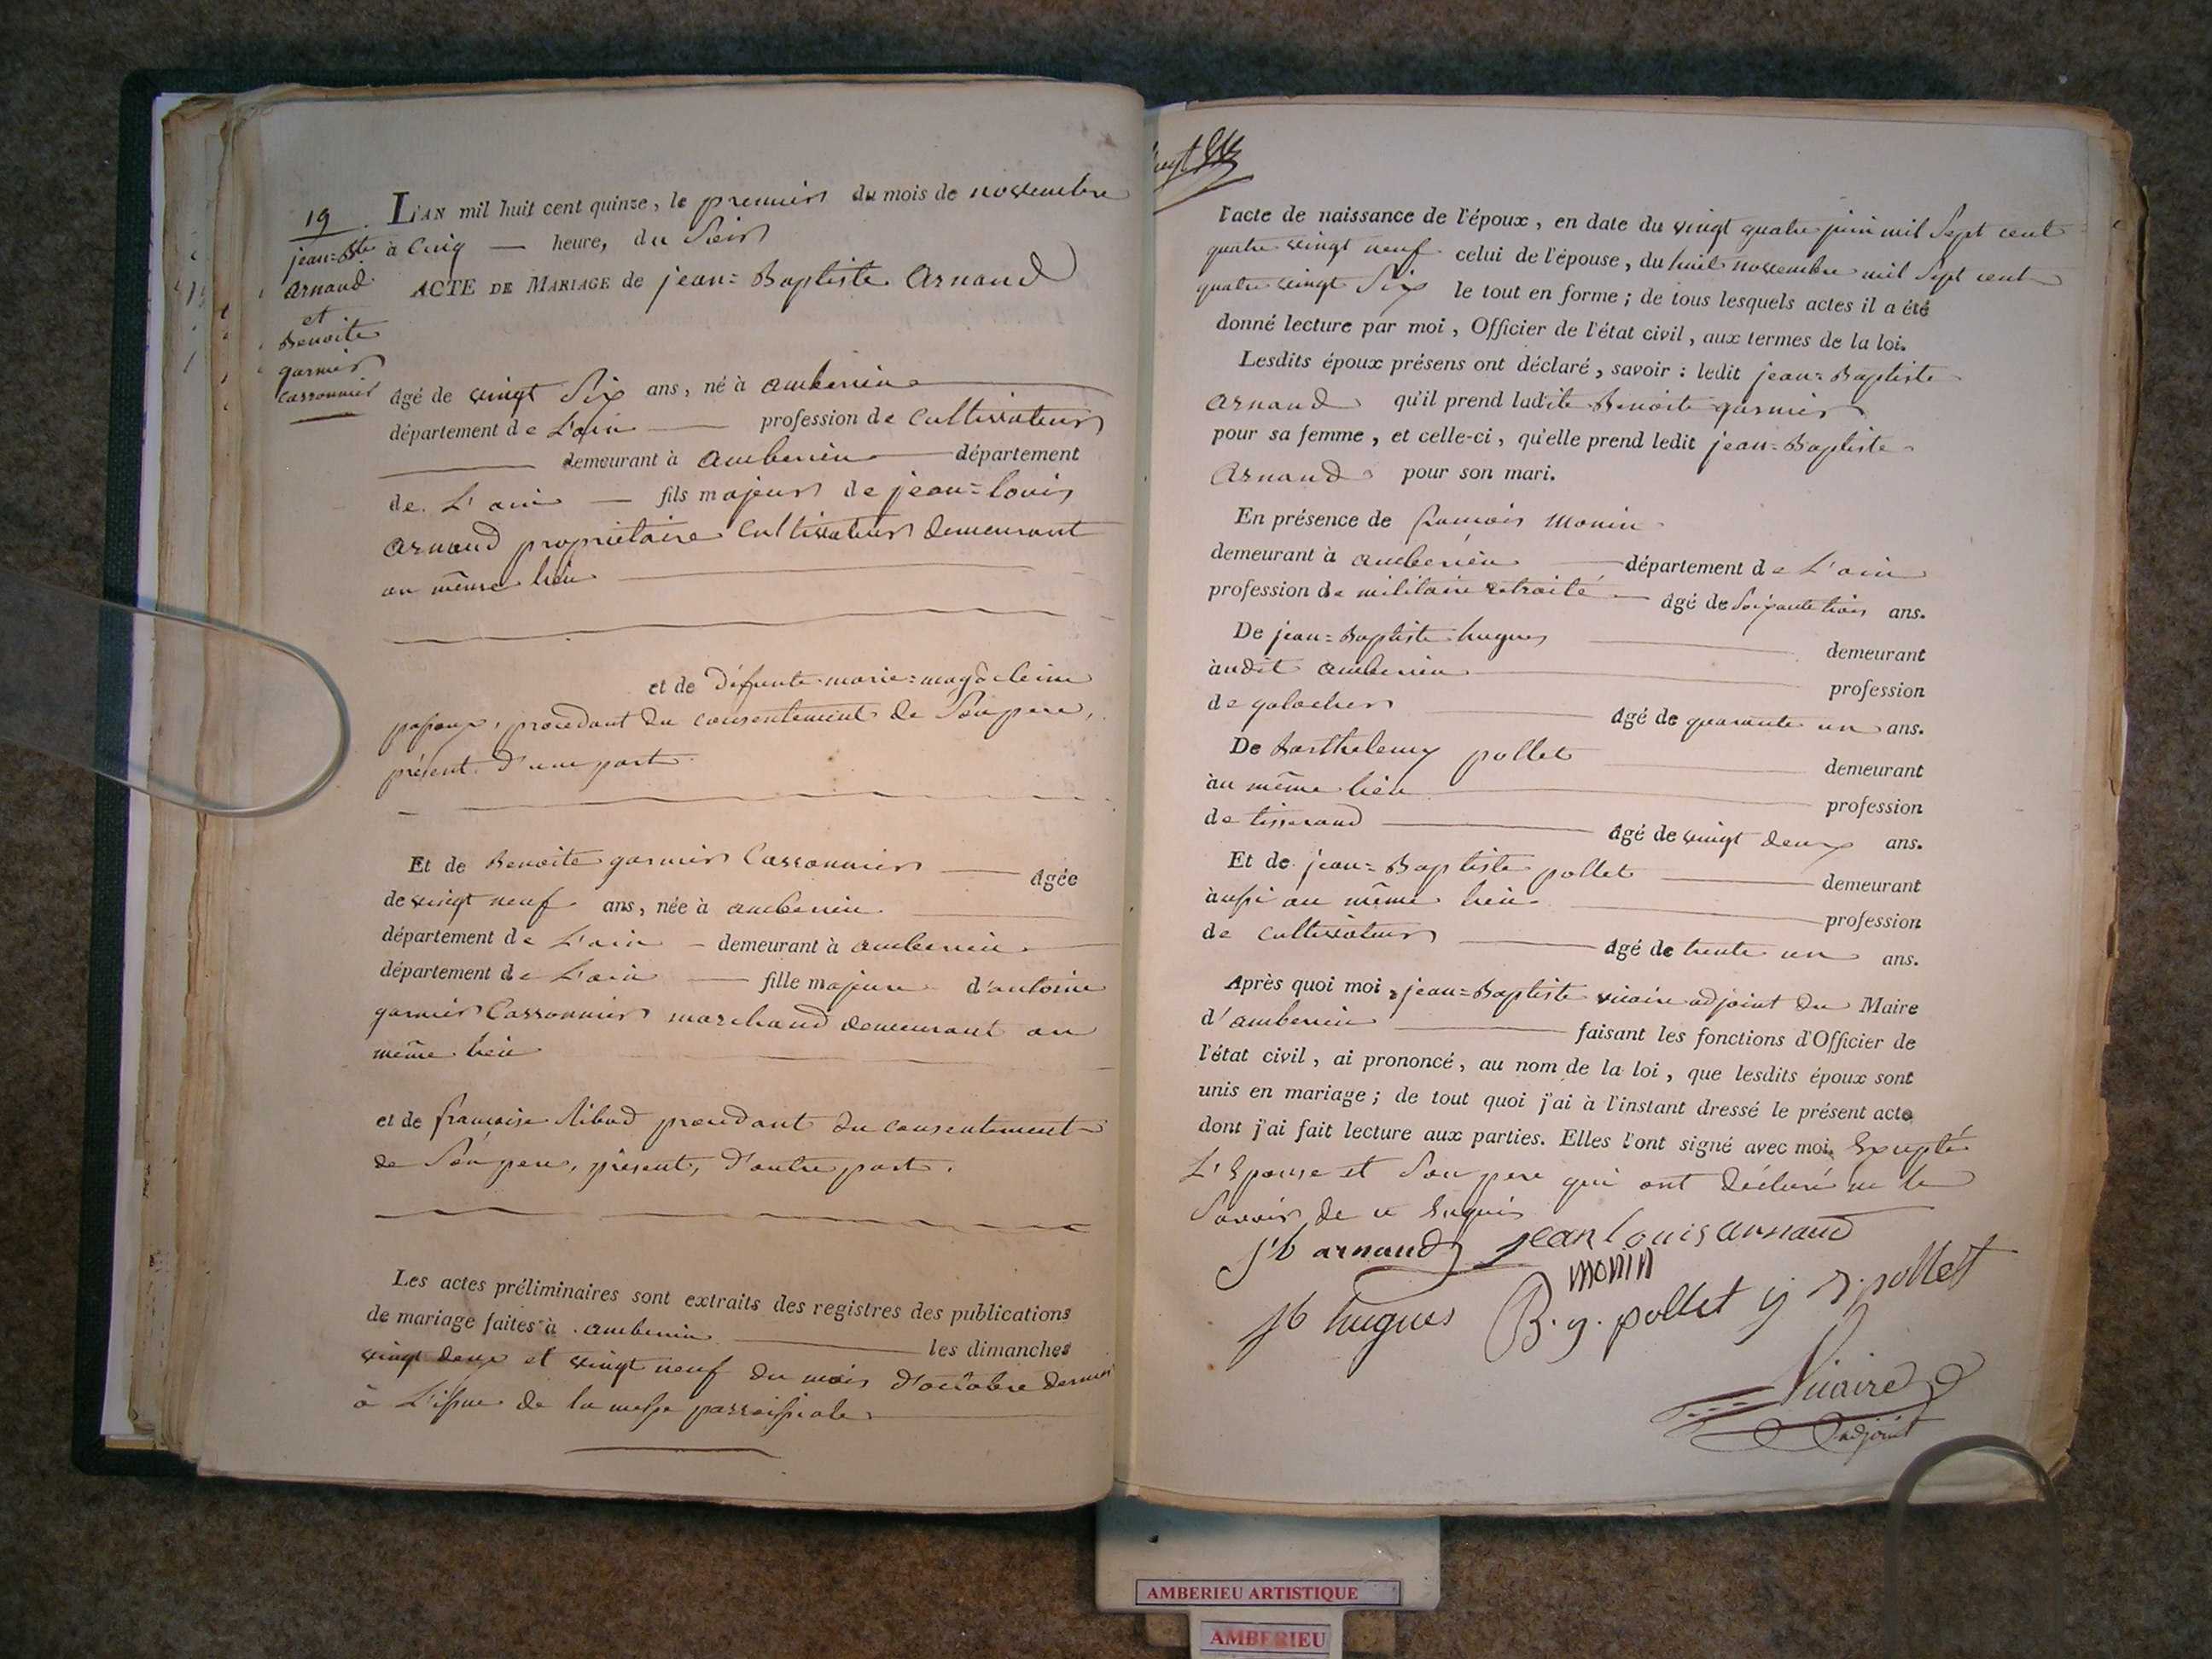 19
jean=Bte
arnaud
et
Benoite
garnier
cassonnier
L'AN mil huit cent quinze, le premier du mois de novembre
à Cinq — heure, du Soir
ACTE DE MARIAGE de jean=Baptiste Arnaud
âgé de vingt Six ans, né à amberieu
département de L'ain — profession de Cultivateur
demeurant à Amberieu — département
de L'ain — fils majeur de jean=louis
arnaud propriétaire Cultivateur demeurant
au même lieu
et de défunte marie=magdeleine
procedant du consentement de Son pere,
présent d'une part
Et de Benoite garnier Cassonnier — âgée
de vingt neuf ans, née à amberieu
département de L'ain — demeurant à amberieu
département de L'ain — fille majeure d'antoine
garnier Cassonnier marchand demeurant au
même lieu
et de françoise Ribod procedant du consentement
de Son pere, présent, d'autre part.
Les actes préliminaires sont extraits des registres des publications
de mariage faites à amberieu les dimanches
vingt deux et vingt neuf du mois d'octobre dernier
à L'issue de la messe parroissiale
l'acte de naissance de l'époux, en date du vingt quatre juin mil Sept cent
quatre vingt neuf celui de l'épouse, du huit novembre mil Sept cent
quatre vingt Six le tout en forme ; de tous lesquels actes il a été
donné lecture par moi, Officier de l'état civil, aux termes de la loi.
Lesdits époux présens ont déclaré, savoir : ledit jean=Baptiste
Arnaud qu'il prend ladite Benoite garnier
pour sa femme, et celle-ci, qu'elle prend ledit jean=Baptiste
Arnaud pour son mari.
En présence de françois Monin
demeurant à amberieu — département de L'ain
profession de militaire retraité — âgé de Soixante trois ans.
De jean=Baptiste hugues — demeurant
audit amberieu — profession
de galocher — âgé de quarante un ans.
De Barthelemy pollet — demeurant
au même lieu — profession
de tisserand — âgé de vingt deux ans.
Et de jean=Baptiste pollet — demeurant
aussi au même lieu — profession
de Cultivateur — âgé de trente un ans.
Après quoi moi, jean=Baptiste vicaire adjoint du Maire
d'amberieu — faisant les fonctions d'Officier de
l'état civil, ai prononcé, au nom de la loi, que lesdits époux sont
unis en mariage ; de tout quoi j'ai à l'instant dressé le présent acte
dont j'ai fait lecture aux parties. Elles l'ont signé avec moi, Excepté
L'Epouse et Son pere qui ont déclaré ne le
Savoir de ce Enquis
jb arnaud jean louis arnaud
monin
jb hugues B.y. pollet j B pollet
Vicaire
adjoint
AMBERIEU ARTISTIQUE
AMBERIEU